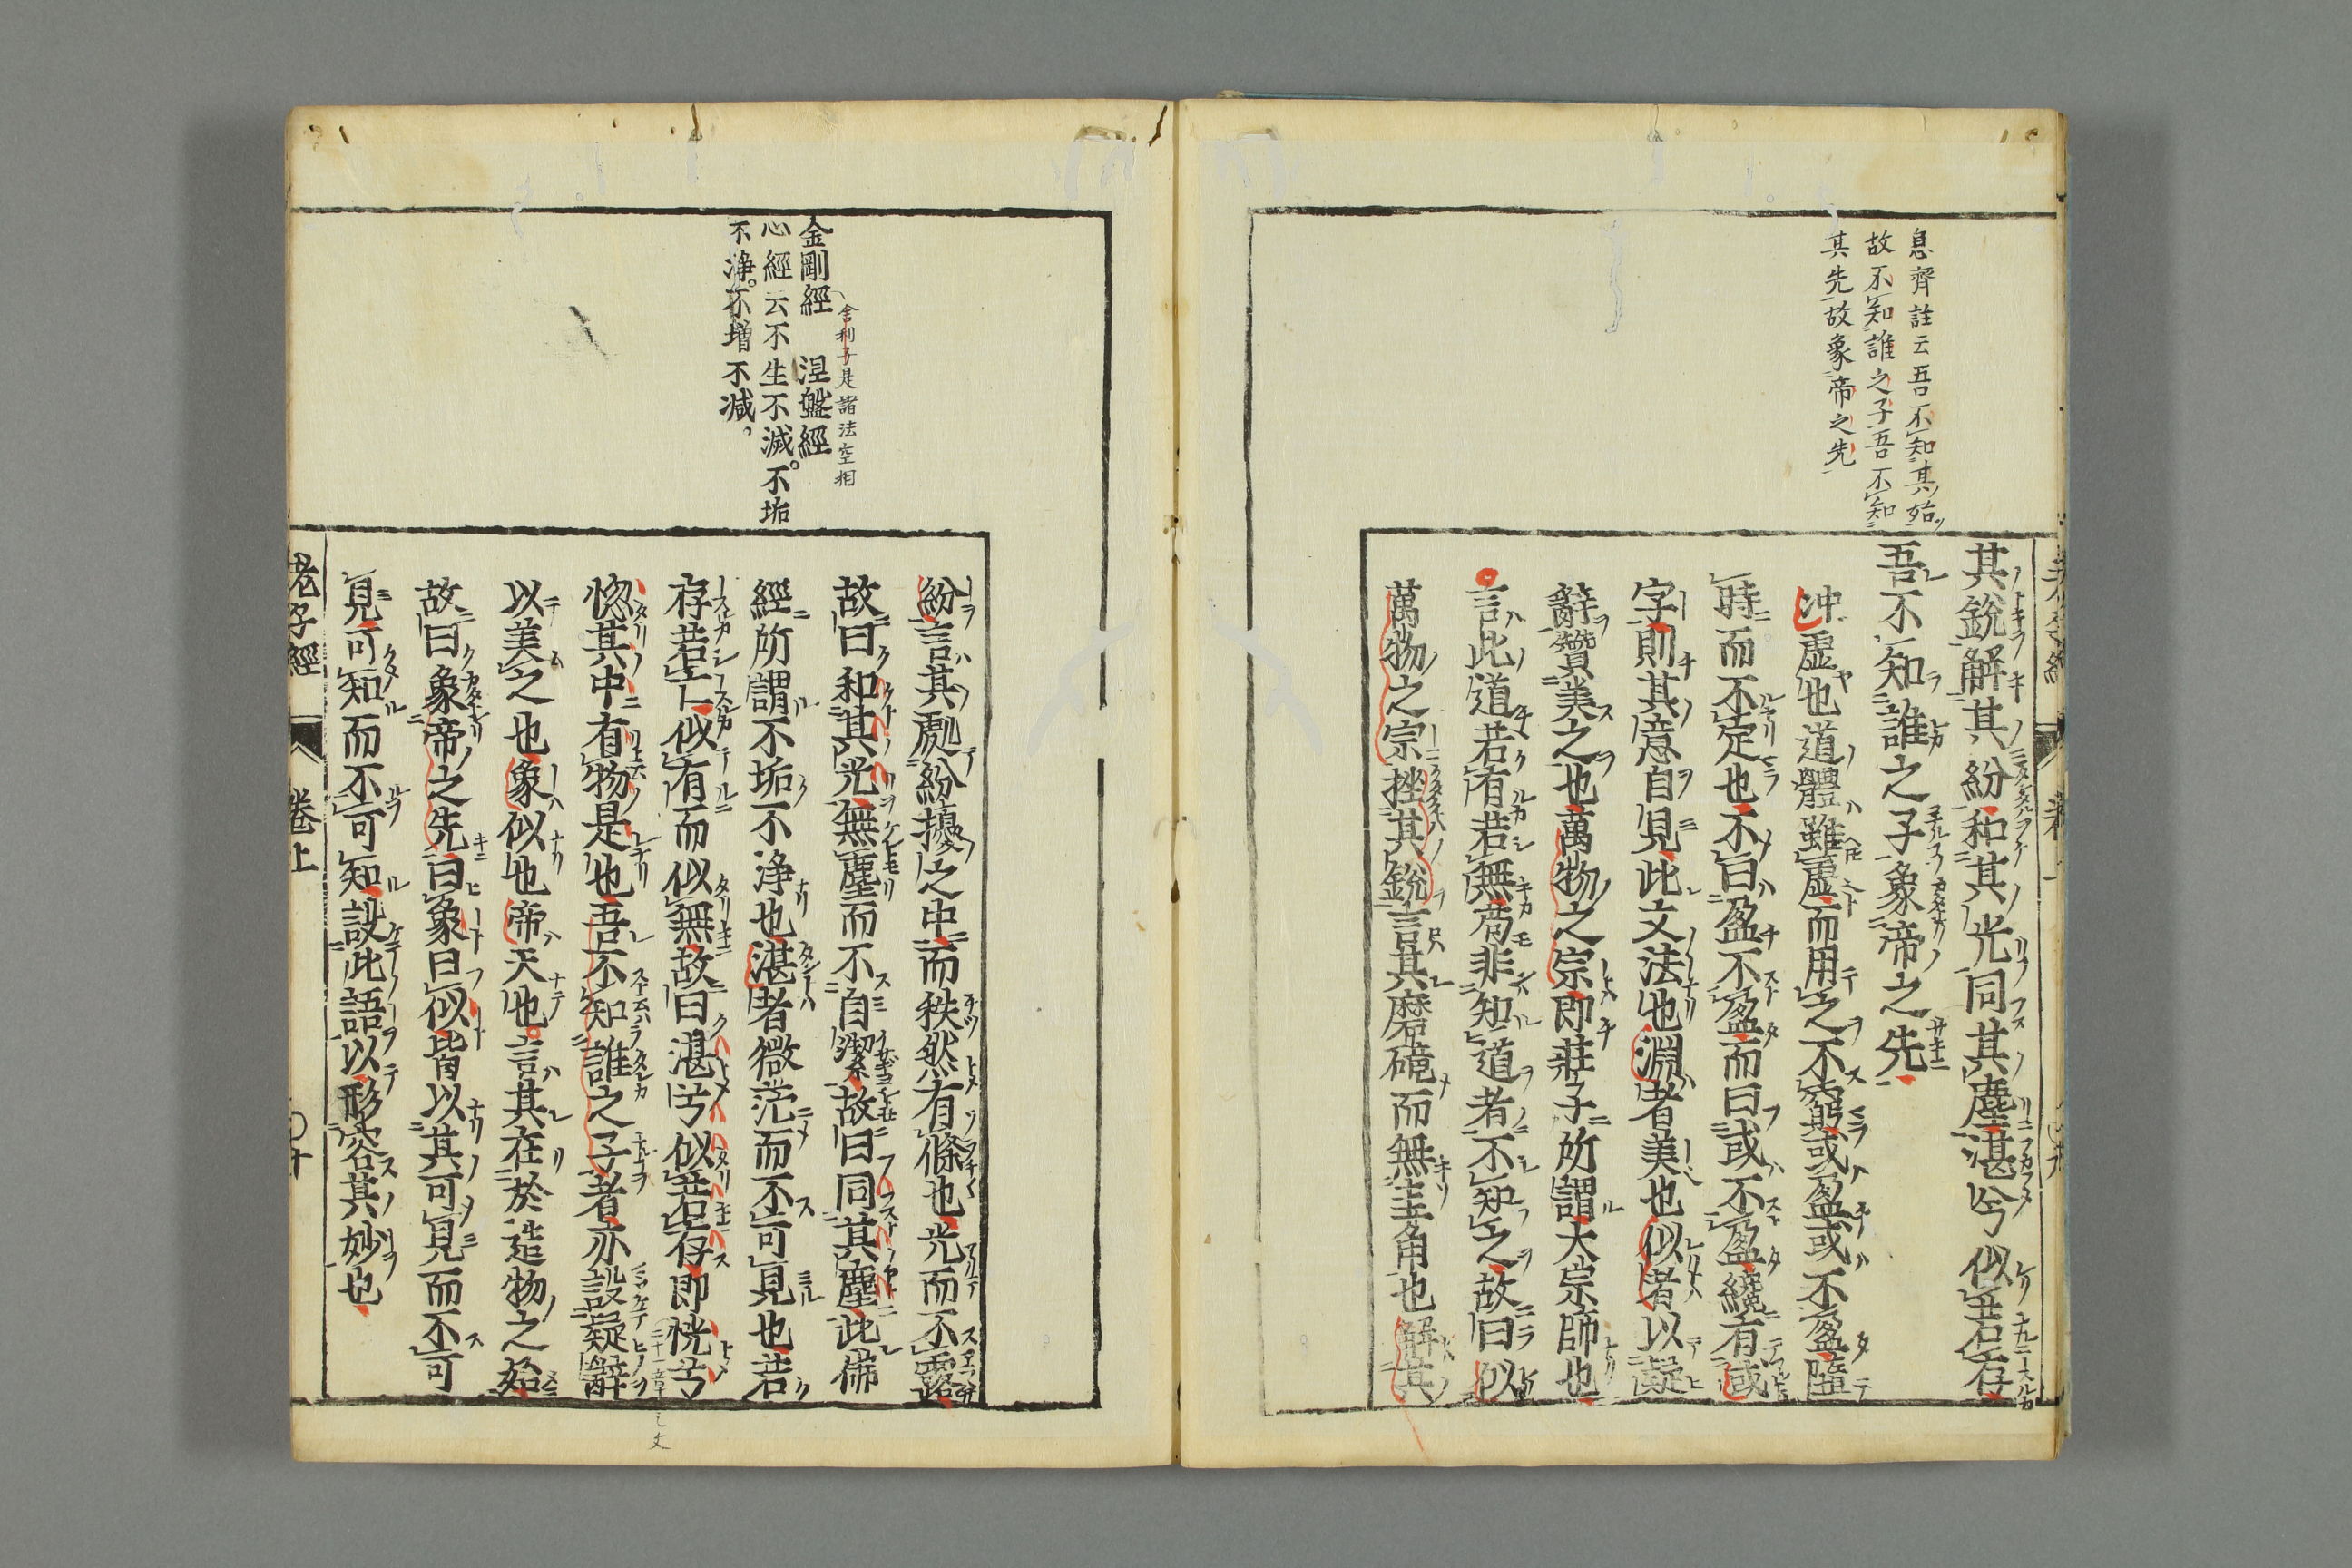 息齊註云吾不知其始
故不知誰之子吾不知
其先故象帝之先
其銳解其紛和其光同其塵湛兮似若存
吾不知誰之子象帝之先
冲虛也道體雖虛而用之不窮或盈或不盈隨
時而不定也不曰盈不盈而曰或不盈纔有或
字則其意自見此文法也淵者美也似者以疑
辭贊美之也萬物之宗即莊子所謂大宗師也
言此道若有若無苟非知道者不知之故曰似
萬物之宗挫其銳言其磨礲而無圭角也解其
金剛經 涅盤經
舍利子是諸法空相
心經云不生不滅。不垢
不淨。不增不減,
紛言其處紛擾之中而秩然有條也光而不露
故曰和其光無塵而不自潔故曰同其塵此佛
經所謂不垢不淨也湛者微茫而不可見也若
存若亡似有而似無故曰湛兮似若存即恍兮
惚其中有物是也吾不知誰之子者亦設疑辭
二十一章之文
以美之也象似也帝天也言其在於造物之始
故曰象帝之先曰象曰似皆以其可見而不可
見可知而不可知設此語以形容其妙也
老子經 卷上 〇十